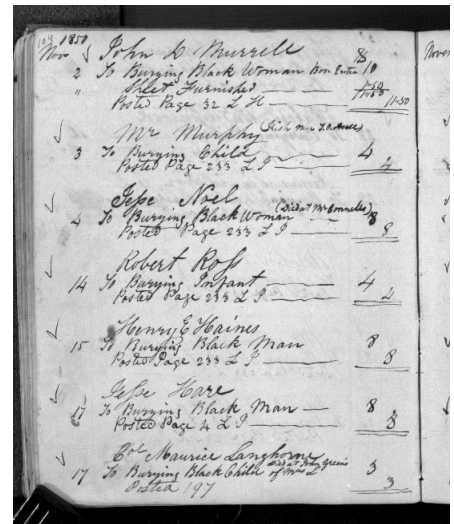 104 1850
Nov John L Murrell $
2 To Burying Black Woman Box Extra 10
" Sheet Furnished 1-50
Posted Page 32 L H 11-50
Mr Murphy (Irish
3 To Burying Child 4
Posted Page 233 L I 4
Jesse Noel
4 To Burying Black Woman (Died at Mr Connelles) 8
Posted Page 233 L I 8
Robert Ross
14 To Burying Infant 4
Posted Page 233 L I 4
Henry E Haines
15 To Burying Black Man 8
Posted Page 233 L I 8
Jesse Hare
17 To Burying Black Man 8
Posted Page 4 L I 8
Col Maurice Langhorne
17 To Burying Black Child Died at John Greens 3
Posted 197 3
Nov